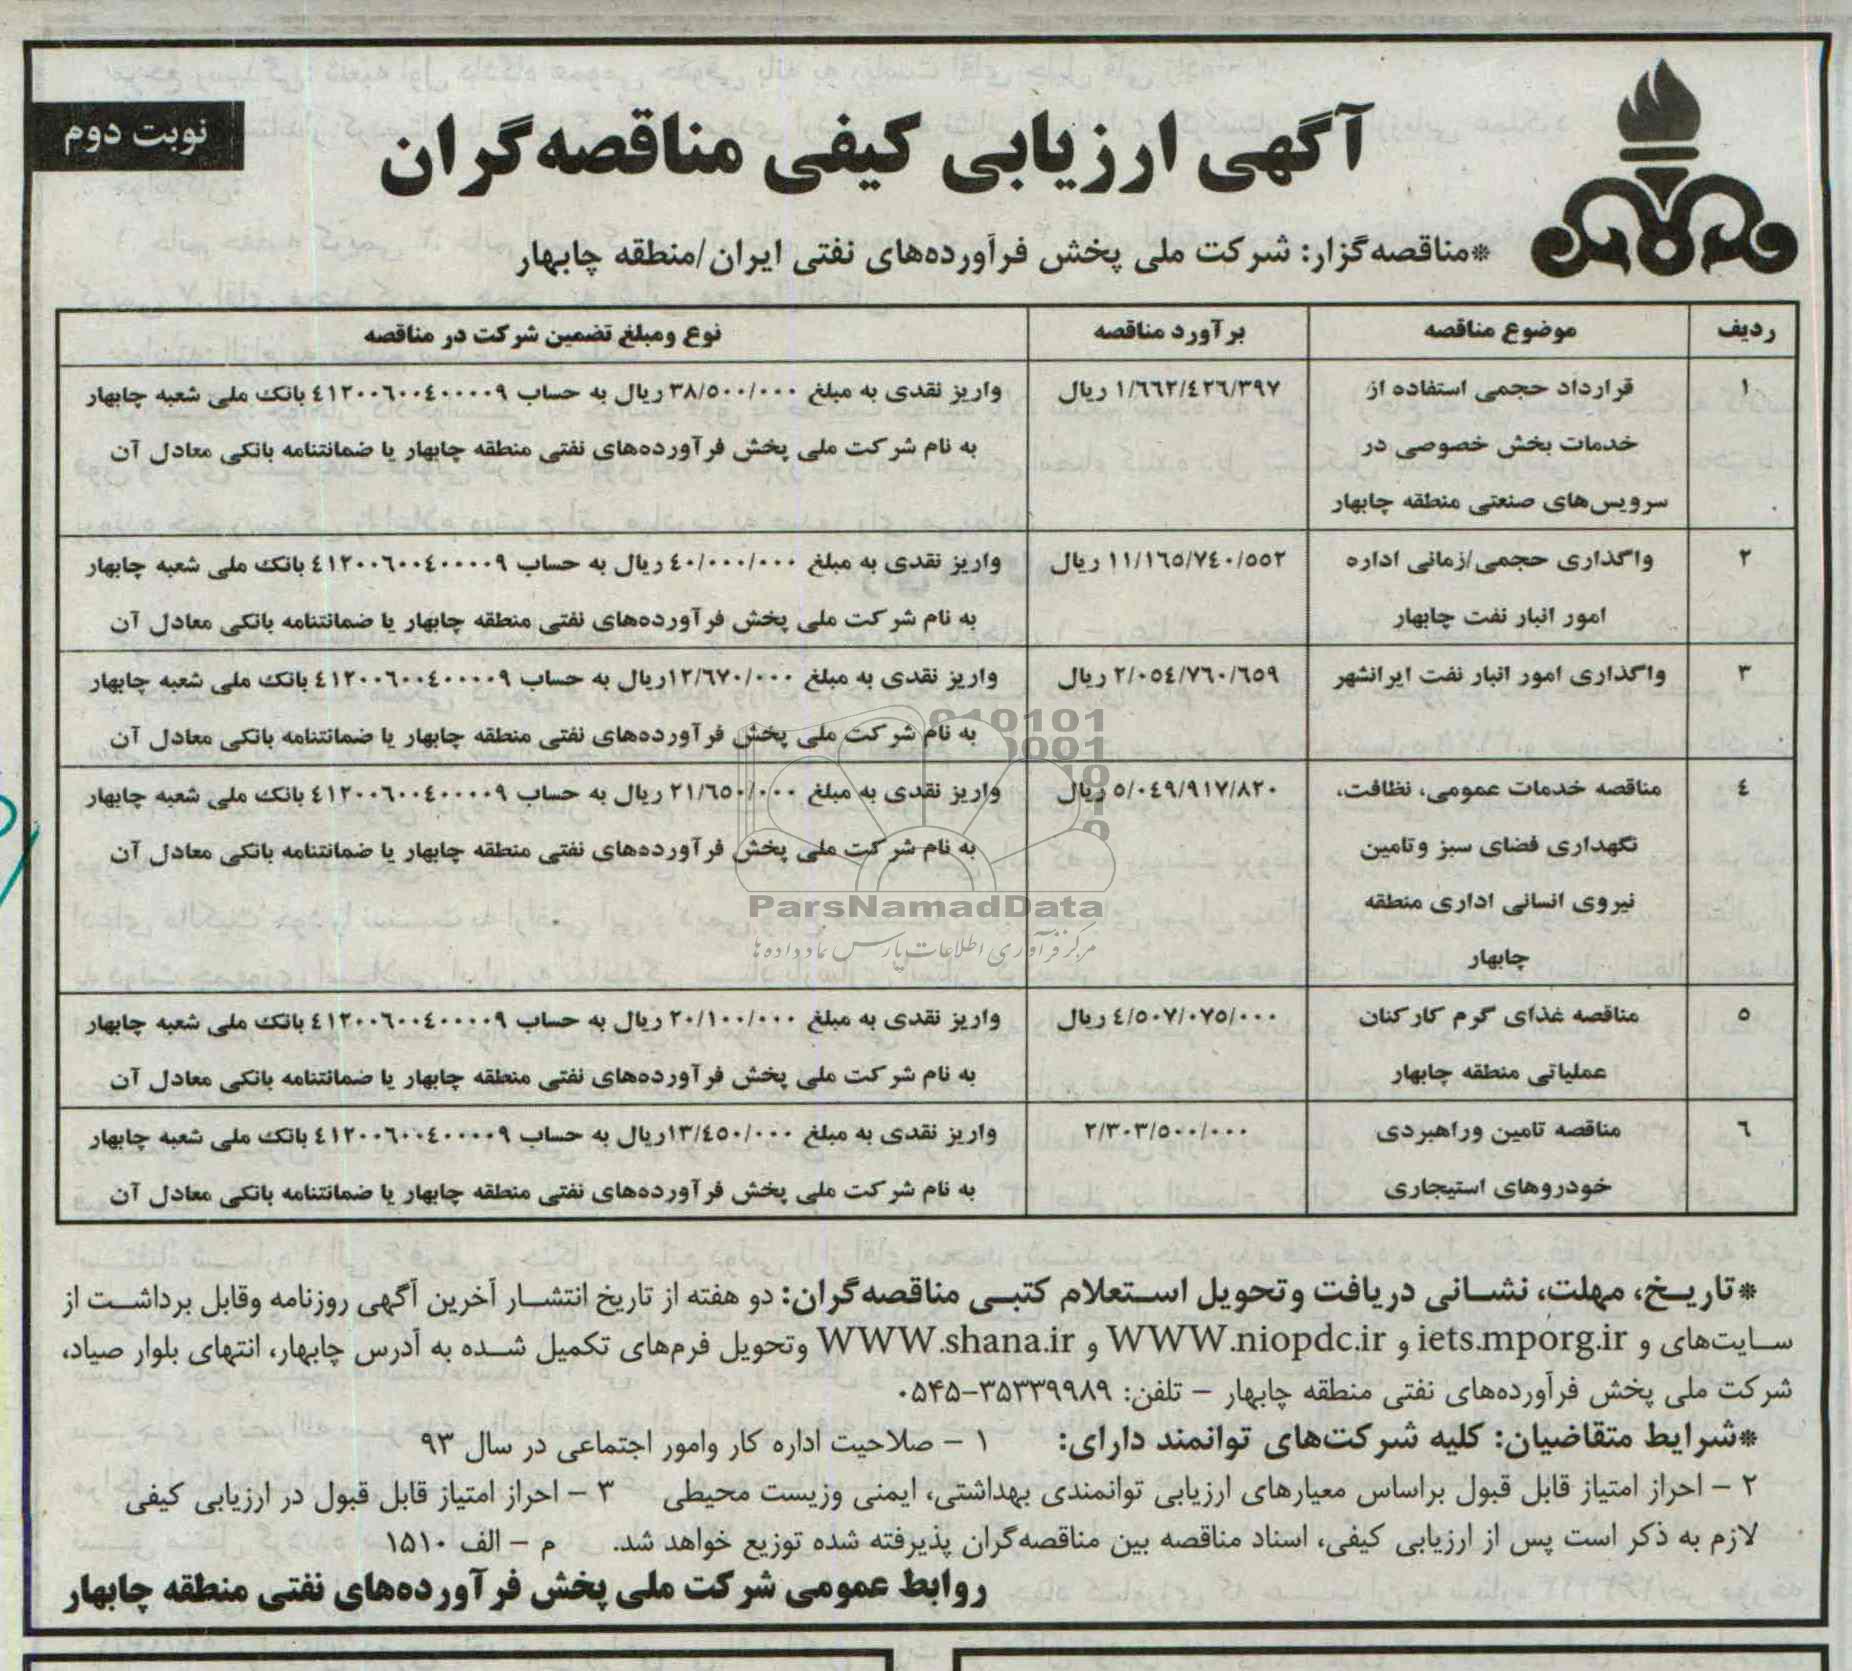 آگهی ارزیابی کیفی مناقصه‌گران
نوبت دوم
*مناقصه‌گزار: شرکت ملی پخش فرآورده‌های نفتی ایران/منطقه چابهار
ردیف موضوع مناقصه برآورد مناقصه نوع ومبلغ تضمین شرکت در مناقصه
۱ قرارداد حجمی استفاده از ۱/۶۶۲/٤۲٦/۳۹۷ ریال واریز نقدی به مبلغ ۳۸/۵۰۰/۰۰۰ ریال به حساب ٤۱۲۰۰٦۰۰٤۰۰۰۰۰۹ بانک ملی شعبه چابهار
خدمات بخش خصوصی در به نام شرکت ملی پخش فرآورده‌های نفتی منطقه چابهار یا ضمانتنامه بانکی معادل آن
سرویس‌های صنعتی منطقه چابهار
۲ واگذاری حجمی/زمانی اداره ۱۱/۱٦٥/۷٤۰/٥٥۲ ریال واریز نقدی به مبلغ ٤۰/۰۰۰/۰۰۰ ریال به حساب ٤۱۲۰۰٦۰۰٤۰۰۰۰۰۹ بانک ملی شعبه چابهار
امور انبار نفت چابهار به نام شرکت ملی پخش فرآورده‌های نفتی منطقه چابهار یا ضمانتنامه بانکی معادل آن
۳ واگذاری امور انبار نفت ایرانشهر ۲/۰٥٤/۷٦۰/٦٥۹ ریال واریز نقدی به مبلغ ۱۲/٦۷۰/۰۰۰ریال به حساب ٤۱۲۰۰٦۰۰٤۰۰۰۰۰۹ بانک ملی شعبه چابهار
به نام شرکت ملی پخش فرآورده‌های نفتی منطقه چابهار یا ضمانتنامه بانکی معادل آن
٤ مناقصه خدمات عمومی، نظافت، ٥/۰٤۹/۹۱۷/۸۲۰ ریال واریز نقدی به مبلغ ۲۱/٦٥۰/۰۰۰ ریال به حساب ٤۱۲۰۰٦۰۰٤۰۰۰۰۰۹ بانک ملی شعبه چابهار
نگهداری فضای سبز وتامین به نام شرکت ملی پخش فرآورده‌های نفتی منطقه چابهار یا ضمانتنامه بانکی معادل آن
نیروی انسانی اداری منطقه
چابهار
٥ مناقصه غذای گرم کارکنان ٤/٥۰۷/۰۷٥/۰۰۰ ریال واریز نقدی به مبلغ ۲۰/۱۰۰/۰۰۰ ریال به حساب ٤۱۲۰۰٦۰۰٤۰۰۰۰۰۹ بانک ملی شعبه چابهار
عملیاتی منطقه چابهار به نام شرکت ملی پخش فرآورده‌های نفتی منطقه چابهار یا ضمانتنامه بانکی معادل آن
٦ مناقصه تامین وراهبردی ۲/۳۰۳/٥۰۰/۰۰۰ واریز نقدی به مبلغ ۱۳/٤٥۰/۰۰۰ریال به حساب ٤۱۲۰۰٦۰۰٤۰۰۰۰۰۹ بانک ملی شعبه چابهار
خودروهای استیجاری به نام شرکت ملی پخش فرآورده‌های نفتی منطقه چابهار یا ضمانتنامه بانکی معادل آن
ParsNamadData
مرکز فرآوری اطلاعات پارس نماد داده ها
*تاریخ، مهلت، نشانی دریافت وتحویل استعلام کتبی مناقصه‌گران: دو هفته از تاریخ انتشار آخرین آگهی روزنامه وقابل برداشت از
سایت‌های و iets.mporg.ir و WWW.niopdc.ir و WWW.shana.ir وتحویل فرم‌های تکمیل شده به آدرس چابهار، انتهای بلوار صیاد،
شرکت ملی پخش فرآورده‌های نفتی منطقه چابهار – تلفن: ۳۵۳۳۹۹۸۹-۰۵۴۵
*شرایط متقاضیان: کلیه شرکت‌های توانمند دارای: ۱ – صلاحیت اداره کار وامور اجتماعی در سال ۹۳
۲ – احراز امتیاز قابل قبول براساس معیارهای ارزیابی توانمندی بهداشتی، ایمنی وزیست محیطی ۳ – احراز امتیاز قابل قبول در ارزیابی کیفی
لازم به ذکر است پس از ارزیابی کیفی، اسناد مناقصه بین مناقصه‌گران پذیرفته شده توزیع خواهد شد. م – الف ۱۵۱۰
روابط عمومی شرکت ملی پخش فرآورده‌های نفتی منطقه چابهار